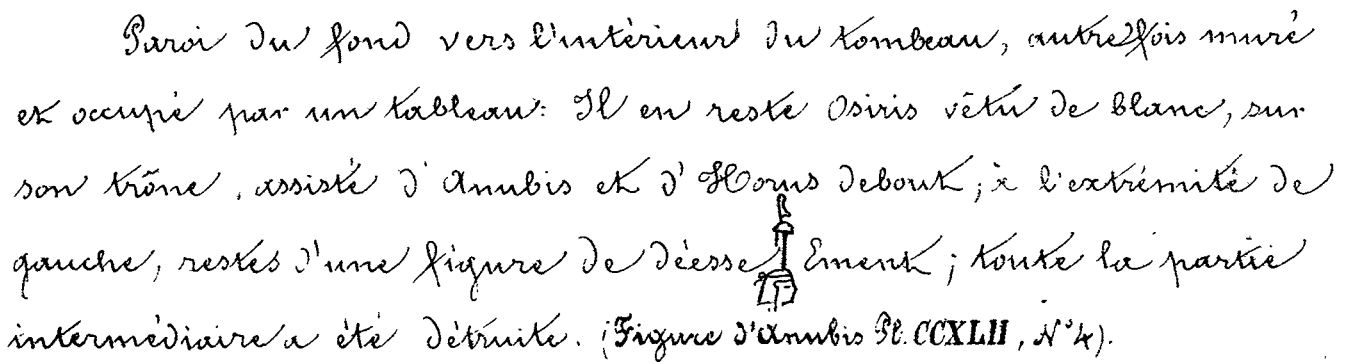 Paroi du fond vers l'intérieur du tombeau, autrefois muré
et occupé par un tableau: Il en reste Osiris vêtu de blanc, sur
son trône, assisté d'Anubis et d'Horus debout; à l'extrémité de
gauche, restes d'une figure de déesse Ement; toute la partie
intermédiaire a été détruite. (Figure d'Anubis Pl. CCXLII, N° 4).